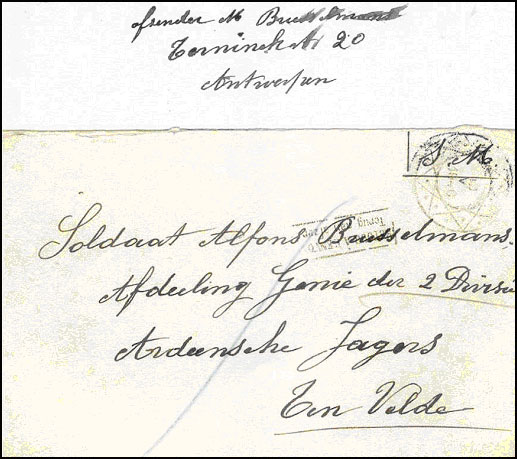 afsender M Brusselmans
Terninckstr 20
Antwerpen
S. M.
Soldaat Alfons Brusselmans
Afdeeling Genie der 2 Divisie
Ardeensche Jagers
Ten Velde